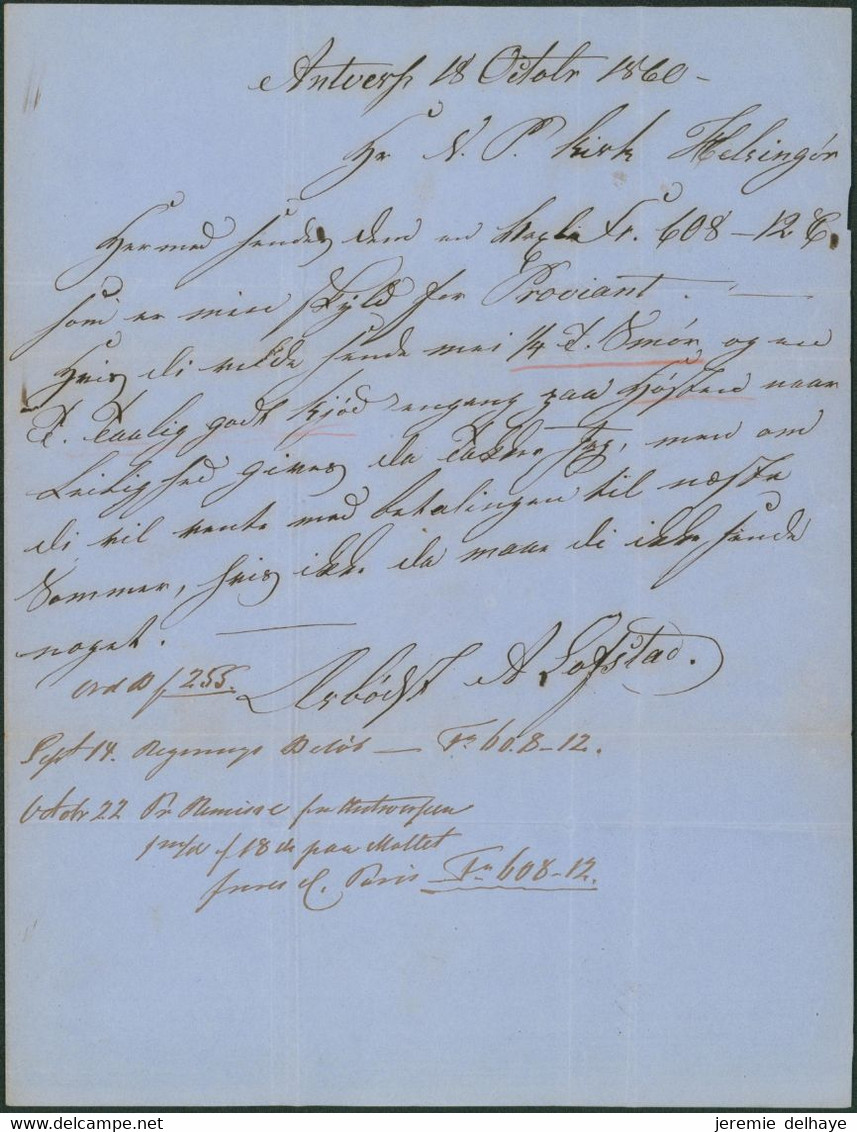 Antverp 18 Octobr 1860 -
Hr N. P. Kirk Helsingör
Hermed sendes dem en Fr. 608 - 12 C
som er min Skyld for Proviant. —
Hvis di vilde sende mei 1/4 T. Smör, og en
T. Taalig godt Kiöd engang paa Hösten naar
Leilighed gives da Takker Jeg, men om
di vil vente med betalingen til næste
Sommer, hvis ikke da maa di ikke sende
noget. —
Ærbödigst A Lofstad.
255.
Sept 14. Regnings Belöb — Fr 608-12.
Octobr 22 Pr Remisse fra Antwerpen
18 paa Mallet
freres & C. Paris Fr 608-12.
jeremie delhaye